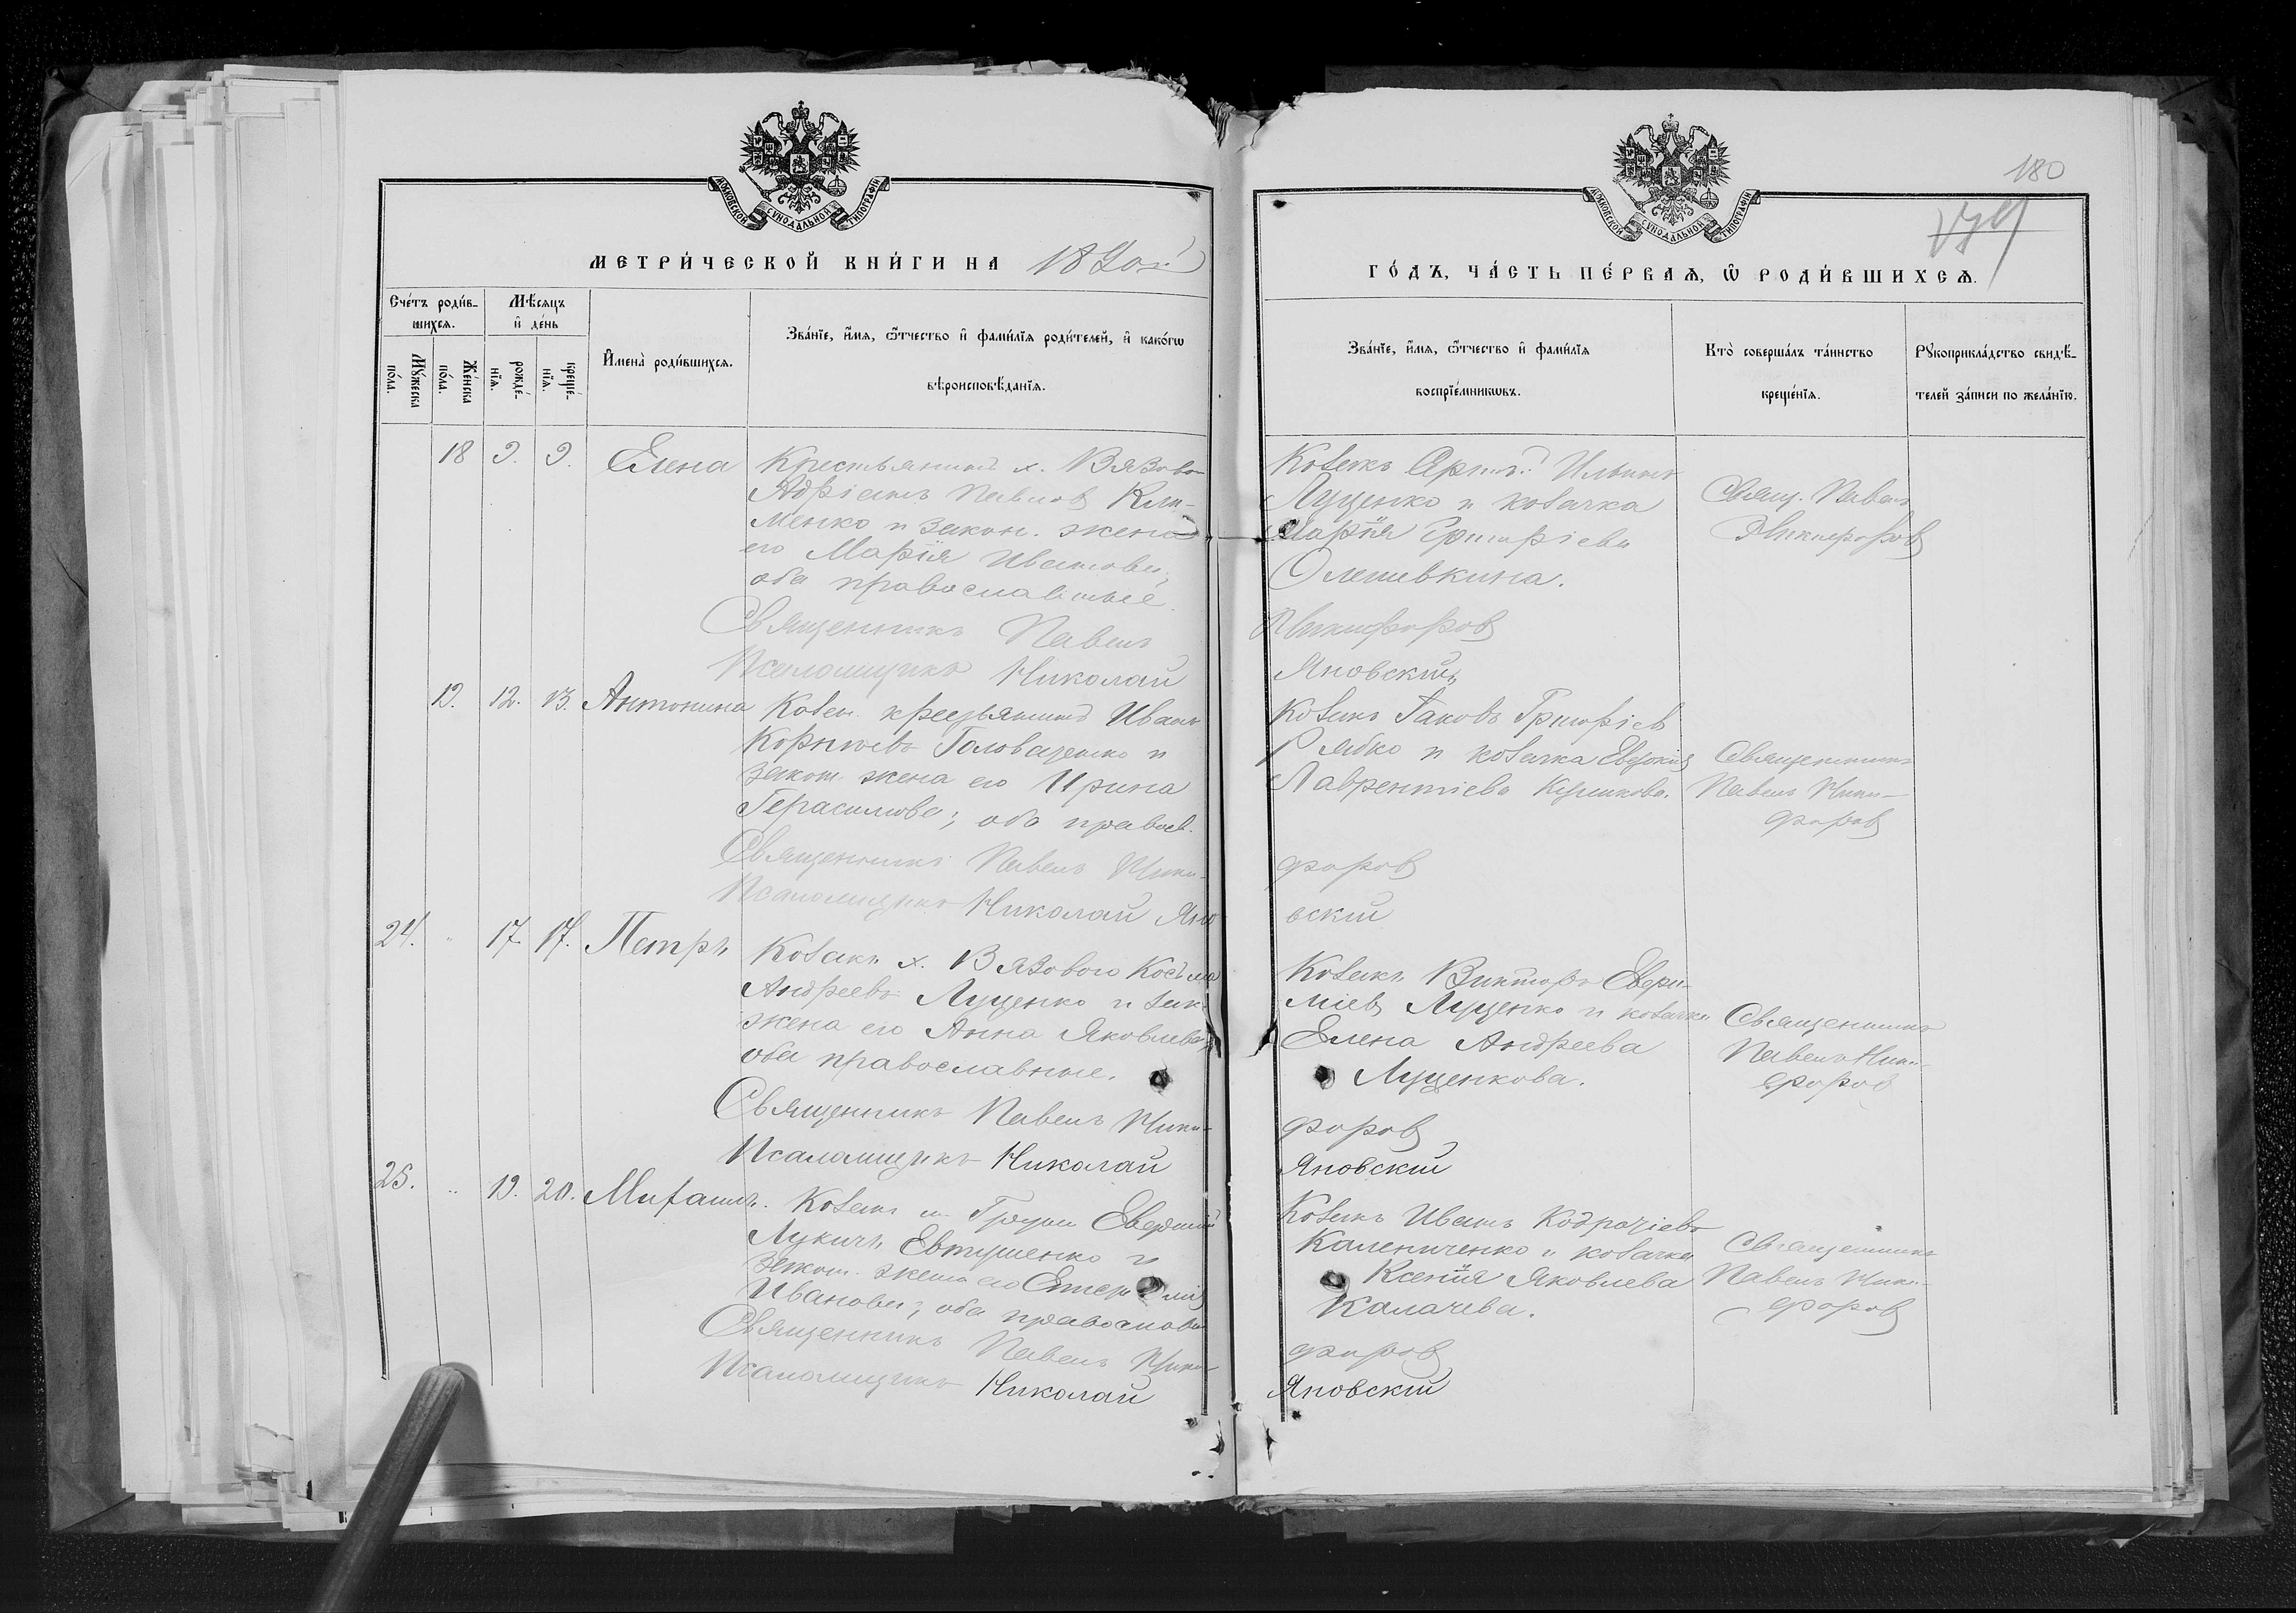 МОСКОВСКОЙ СУНОДАЛЬНОЙ ТИПОГРАФІИ
МЕТРИ́ЧЕСКОЙ КНИ́ГИ НА 18
Сче́тъ роди́в-
шихсѧ.
Мѣ́сѧцъ
и҆ де́нь
Мꙋ́жеска
по́ла.
Же́нска
по́ла.
рожде́-
нїѧ.
креще́-
нїѧ.
И҆мена̀ роди́вшихсѧ.
Зва́нїе, и҆́мѧ, ѻ҆́тчество и҆ фами́лїѧ роди́телей, и҆ како́гѡ
вѣроисповѣ́данїѧ.
18 9. 9. Елена
Крестьянинъ х. Вязоваго
Адріанъ Павловъ Кли-
менко и закон. жена
его Марія Иванова,
оба православные.
Священникъ Павелъ
Псаломщикъ Николай
19. 12. 13. Антонина
крестьянинъ Иванъ
Корніевъ Головащенко и
закон. жена его Ирина
Герасимова; оба правосл.
Священникъ Павелъ Ники-
Псаломщикъ Николай Яно
24. " 17. 17. Петръ
Козакъ х. Вязового Косьма
Андреевъ Луценко и зак.
жена его Анна Яковлева,
оба православные.
Священникъ Павелъ Ники-
Псаломщикъ Николай
25. " 19. 20. Митрофанъ.
Козакъ м. Груни
Лукичъ Евтушенко и
закон. жена его
Иванова; оба православн.
Священникъ Павелъ Ники-
Псаломщикъ Николай
180
МОСКОВСКОЙ СУНОДАЛЬНОЙ ТИПОГРАФІИ
ГО́ДЪ, ЧА́СТЬ ПЕ́РВАѦ, Ѡ҆ РОДИ́ВШИХСѦ.
Зва́нїе, и҆́мѧ, ѻ҆́тчество и҆ фами́лїѧ
воспрїе́мникѡвъ.
Кто̀ соверша́лъ та́инство
креще́нїѧ.
Рꙋкоприкла́дство свидѣ́-
телей за́писи по жела́нїю.
Козакъ Ильинъ
Луценко и козачка
Марія Григоріева
Олешвкина.
Никифоровъ
Яновскій
Свящ. Павелъ
Никифоровъ
Козакъ Іаковъ Григоріев
Рябко и козачка Евдокія
Лаврентіева
форовъ
вскій
Священникъ
Павелъ Ники-
форовъ
Козакъ Викторъ Евфи-
міевъ Луценко и козачка
Елена Андреева
Луценкова.
форовъ
Яновскій
Священникъ
Павелъ Ники-
форовъ
Козакъ Иванъ Кодрачіевъ
Калениченко и козачка
Ксенія Яковлева
Калачева.
форовъ
Яновскій
Священникъ
Павелъ Ники-
форовъ